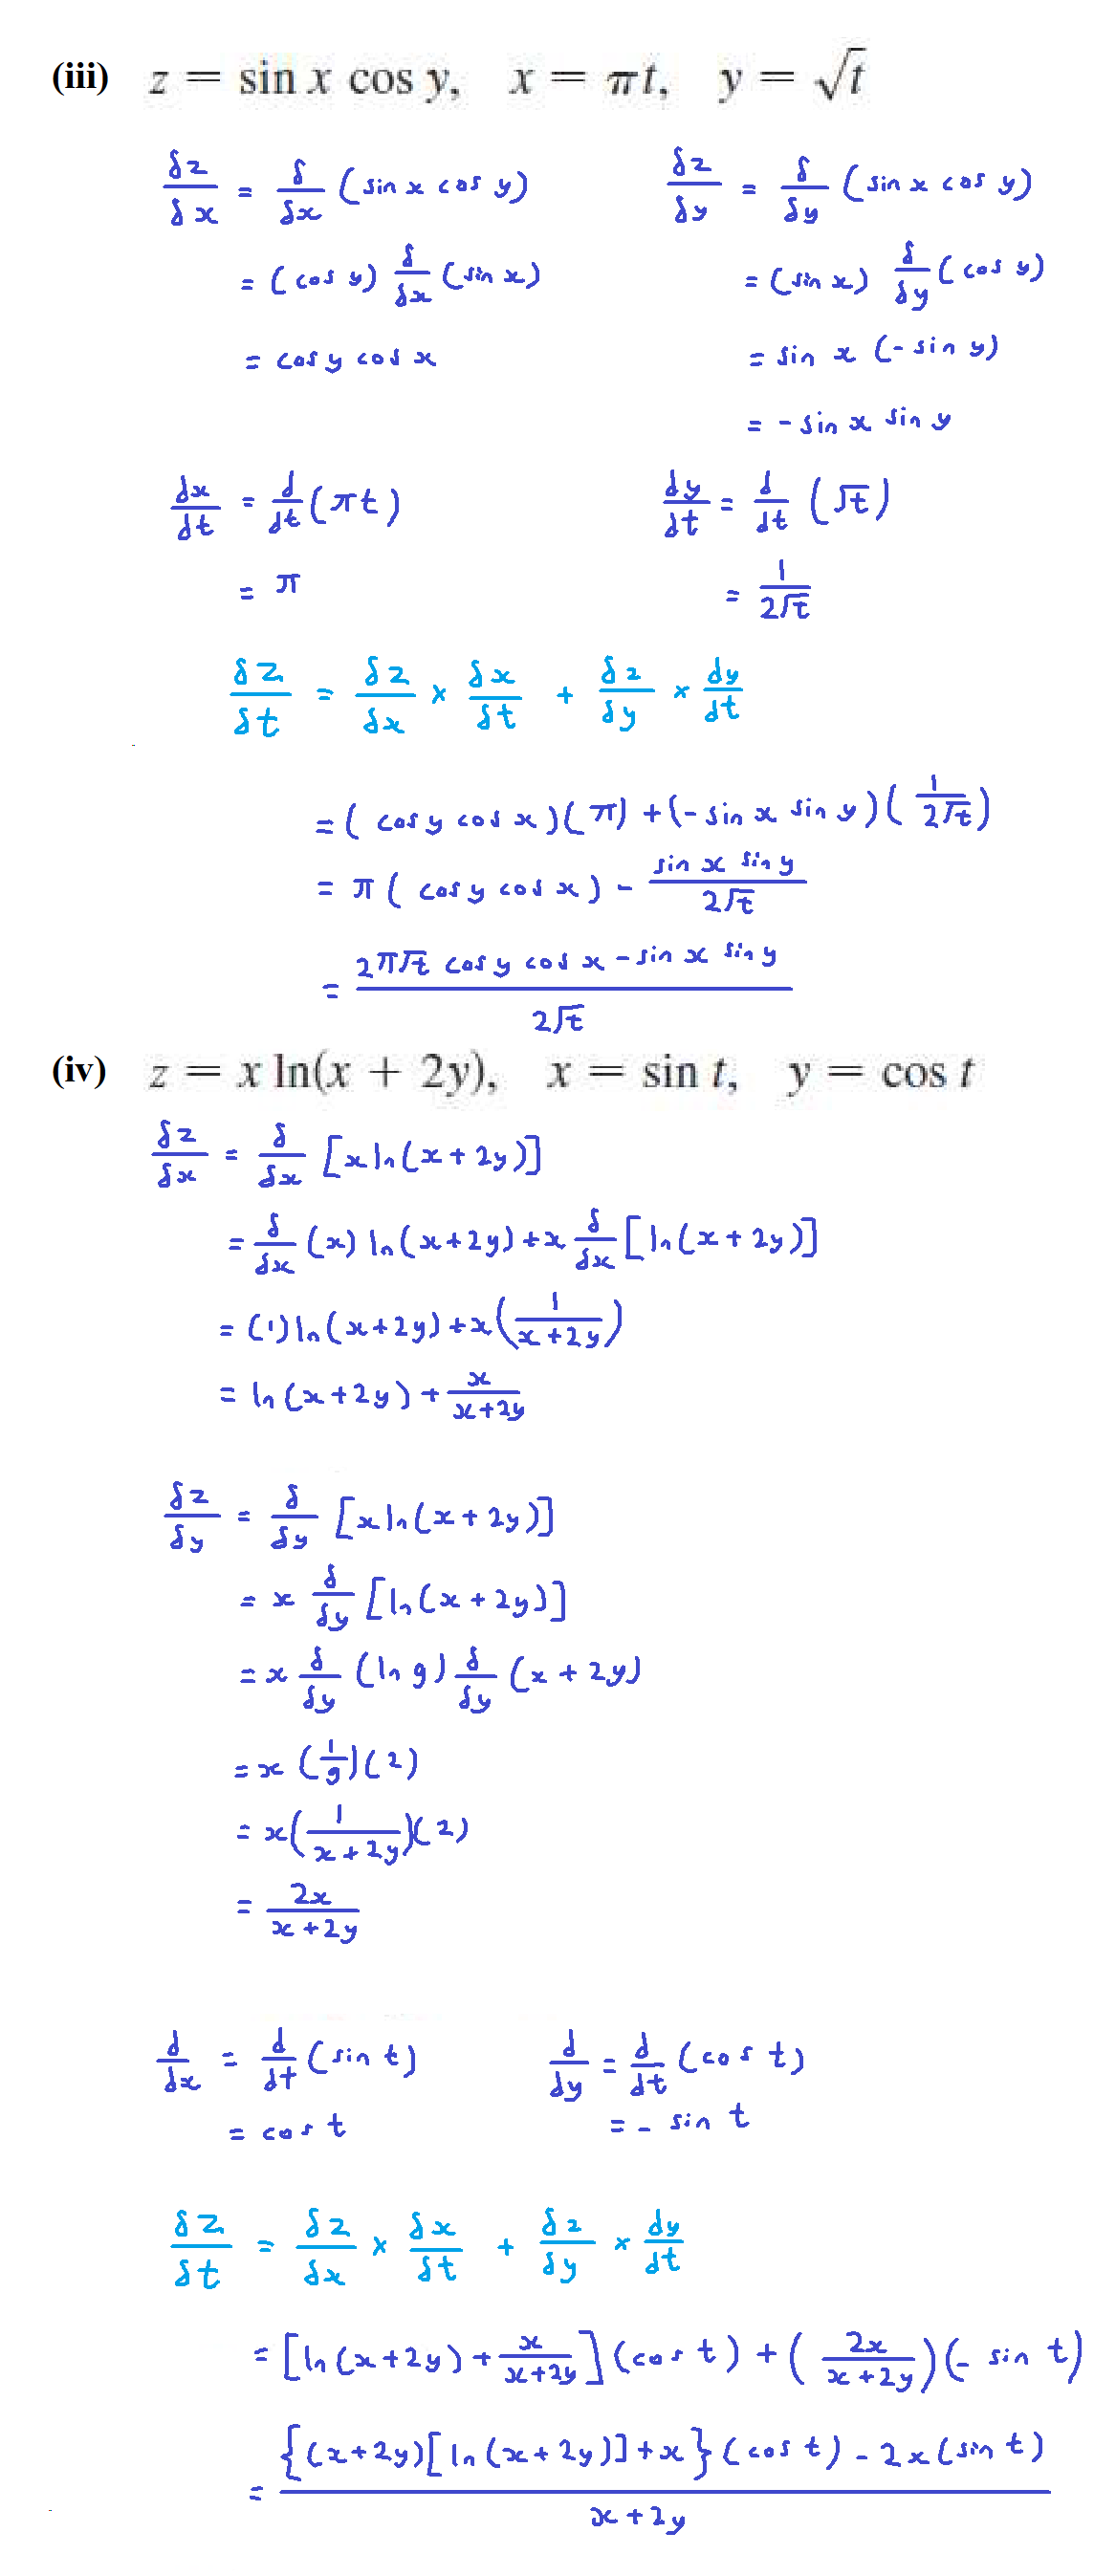 (iii) z = sin x cos y, x = πt, y = √t
δz/δx = δ/δx (sin x cos y)
= (cos y) δ/δx (sin x)
= cos y cos x
δz/δy = δ/δy (sin x cos y)
= (sin x) δ/δy (cos y)
= sin x (- sin y)
= - sin x sin y
dx/dt = d/dt (πt)
= π
dy/dt = d/dt (√t)
= 1/2√t
δz/δt = δz/δx × δx/δt + δz/δy × dy/dt
= (cos y cos x)(π) + (- sin x sin y)(1/2√t)
= π (cos y cos x) - sin x sin y/2√t
= 2π√t cos y cos x - sin x sin y/2√t
(iv) z = x ln(x + 2y), x = sin t, y = cos t
δz/δx = δ/δx [x ln(x + 2y)]
= δ/δx (x) ln(x+2y) + x δ/δx [ln(x + 2y)]
= (1) ln(x+2y) + x(1/x+2y)
= ln(x+2y) + x/x+2y
δz/δy = δ/δy [x ln(x + 2y)]
= x δ/δy [ln(x + 2y)]
= x δ/δy (ln g) δ/δy (x + 2y)
= x (1/g)(2)
= x(1/x+2y)(2)
= 2x/x+2y
d/dx = d/dt (sin t)
= cos t
d/dy = d/dt (cos t)
= - sin t
δz/δt = δz/δx × δx/δt + δz/δy × dy/dt
= [ln(x+2y) + x/x+2y](cos t) + (2x/x+2y)(- sin t)
= {(x+2y)[ln(x+2y)]+x}(cos t) - 2x(sin t)/x+2y